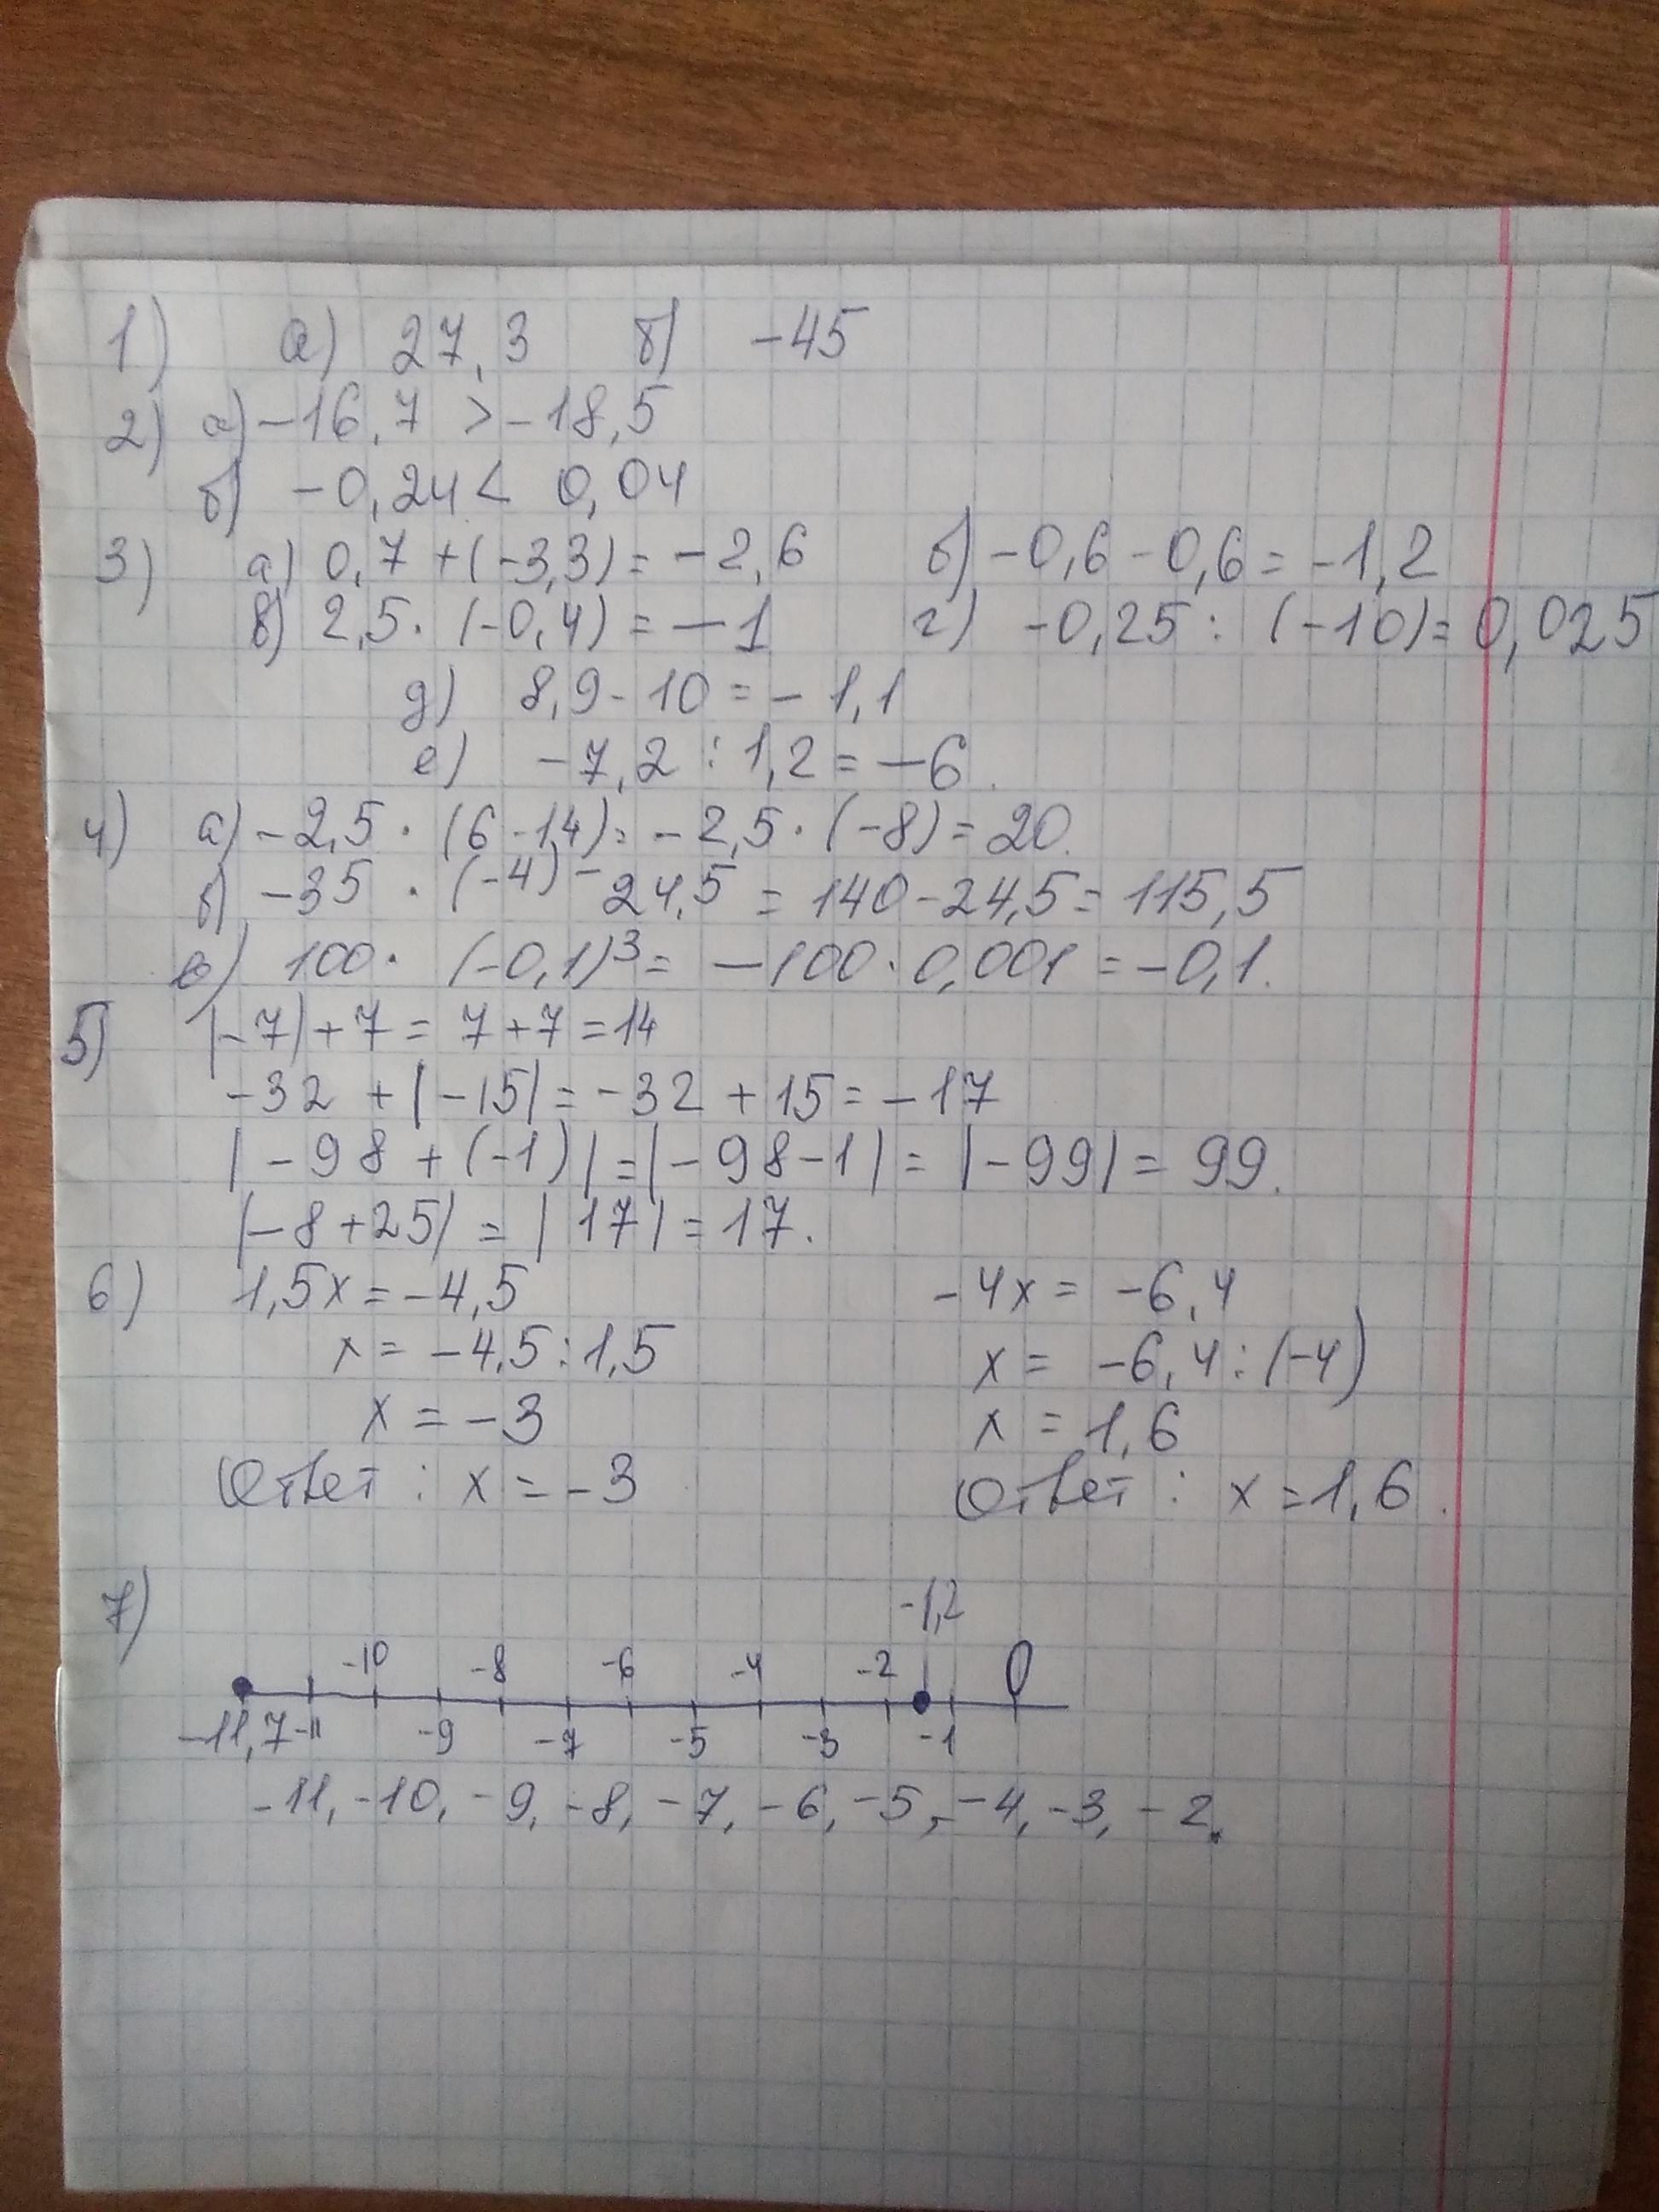 1) а) 27,3 б) -45
2) а) -16,7 > -18,5
б) -0,24 < 0,04
3) а) 0,7 + (-3,3) = -2,6 б) -0,6 - 0,6 = -1,2
в) 2,5 · (-0,4) = -1 г) -0,25 : (-10) = 0,025
д) 8,9 - 10 = -1,1
е) -7,2 : 1,2 = -6.
4) а) -2,5 · (6 - 14) = -2,5 · (-8) = 20.
б) -35 · (-4) - 24,5 = 140 - 24,5 = 115,5
в) 100 · (-0,1)³ = -100 · 0,001 = -0,1.
5) |-7| + 7 = 7 + 7 = 14
-32 + |-15| = -32 + 15 = -17
|-98 + (-1)| = |-98 - 1| = |-99| = 99.
|-8 + 25| = |17| = 17.
6) 1,5x = -4,5 -4x = -6,4
x = -4,5 : 1,5 x = -6,4 : (-4)
x = -3 x = 1,6
Ответ : x = -3 Ответ : x = 1,6.
7) -1,2
-10 -8 -6 -4 -2 0
-11,7 -11 -9 -7 -5 -3 -1
-11, -10, -9, -8, -7, -6, -5, -4, -3, -2.